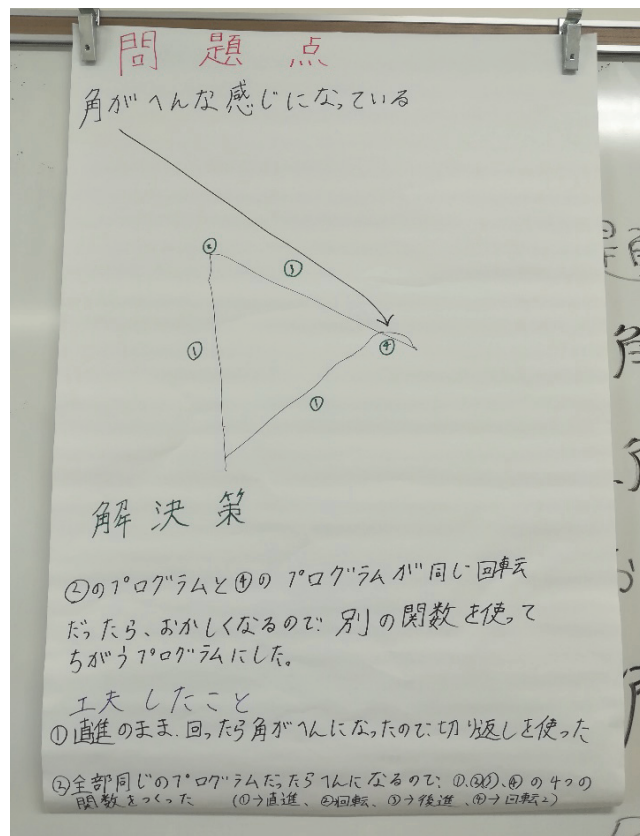 問題点
角がへんな感じになっている
②
③
①
④
①
解決策
②のプログラムと④のプログラムが同じ回転
だったら、おかしくなるので、別の関数を使って
ちがうプログラムにした。
工夫したこと
①直進のまま、回ったら角がへんになったので、切り返しを使った
②全部同じのプログラムだったらへんになるので、①、②、③、④の4つの
関数をつくった (①→直進、②回転、③→後進、④→回転2)
角